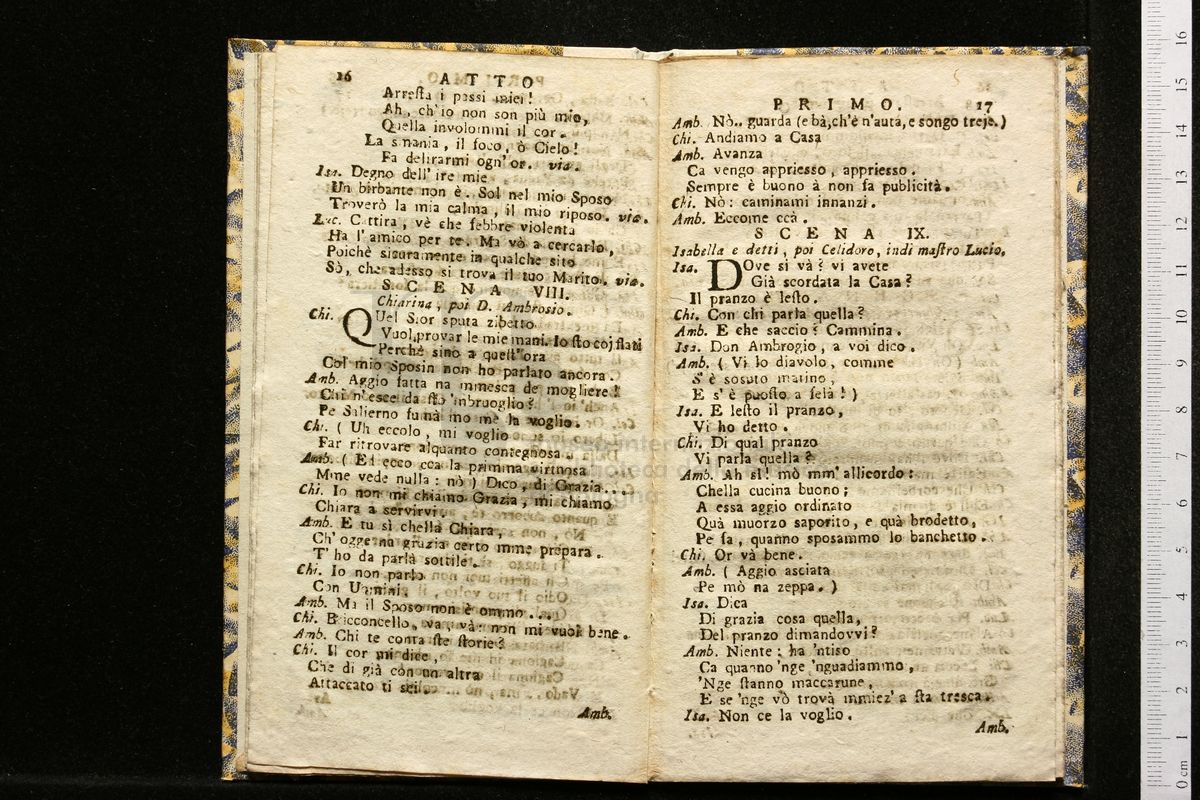 16 ATTO
Arresta i passi miei!
Ah, ch'io non son più mio,
Quella involommi il cor.
La smania, il foco, ò Cielo!
Fa delirarmi ogn'or. via.
Isa. Degno dell' ire mie
Un birbante non è. Sol nel mio Sposo
Troverò la mia calma, il mio riposo. via.
Luc. Cattira, vè che febbre violenta
Ha l'amico per te. Ma vò a cercarlo,
Poichè sicuramente in qualche sito
Sò, che adesso si trova il tuo Marito. via.
SCENA VIII.
Chiarina, poi D. Ambrosio.
Chi. QUel Sior sputa zibetto
Vuol provar le mie mani. Io sto coj flati
Perchè sino a quell'ora
Col mio Sposin non ho parlato ancora.
Amb. Aggio fatta na mmesca de mogliere!
Chi n'esce da sto 'mbruoglio?
Pe Salierno fumà mo me la voglio.
Chi. ( Uh eccolo, mi voglio
Far ritrovare alquanto contegnosa.
Amb. ( Ed ecco cca la primma virtuosa
Mme vede nulla: nò ) Dico, di Grazia...
Chi. Io non mi chiamo Grazia, mi chiamo
Chiara a servirvi.
Amb. E tu sì chella Chiara,
Ch' ogge na grazia certo mme prepara.
T' ho da parlà sottile.
Chi. Io non parlo
Con Uomini.
Amb. Ma il Sposo non è ommo...
Chi. Bricconcello, va, và: non mi vuoi bene.
Amb. Chi te conta ste storie?
Chi. Il cor mi dice,
Che di già con un altra
Attaccato ti sei
Amb.
PRIMO. 17
Amb. Nò.. guarda (e bà, ch'è n'auta, e songo treje.)
Chi. Andiamo a Casa
Amb. Avanza
Ca vengo appriesso, appriesso.
Sempre è buono à non fa publicità.
Chi. Nò: caminami innanzi.
Amb. Eccome ccà.
SCENA IX.
Isabella e detti, poi Celidoro, indi mastro Lucio.
Isa. DOve si và? vi avete
Già scordata la Casa?
Il pranzo è lesto.
Chi. Con chi parla quella?
Amb. E che saccio? Cammina.
Isa. Don Ambrogio, a voi dico.
Amb. ( Vi lo diavolo, comme
S'è sosuto matino,
E s'è puosto a felà!)
Isa. E lesto il pranzo,
Vi ho detto.
Chi. Di qual pranzo
Vi parla quella?
Amb. Ah sì! mò mm'allicordo:
Chella cucina buono;
A essa aggio ordinato
Quà muorzo saporito, e quà brodetto,
Pe fa, quanno sposammo lo banchetto.
Chi. Or và bene.
Amb. ( Aggio asciata
Pe mò na zeppa. )
Isa. Dica
Di grazia cosa quella,
Del pranzo dimandovvi?
Amb. Niente: ha 'ntiso
Ca quanno 'nge 'nguadiammo,
'Nge stanno maccarune,
E se 'nge vò trovà mmiez' a sta tresca.
Isa. Non ce la voglio.
Amb.